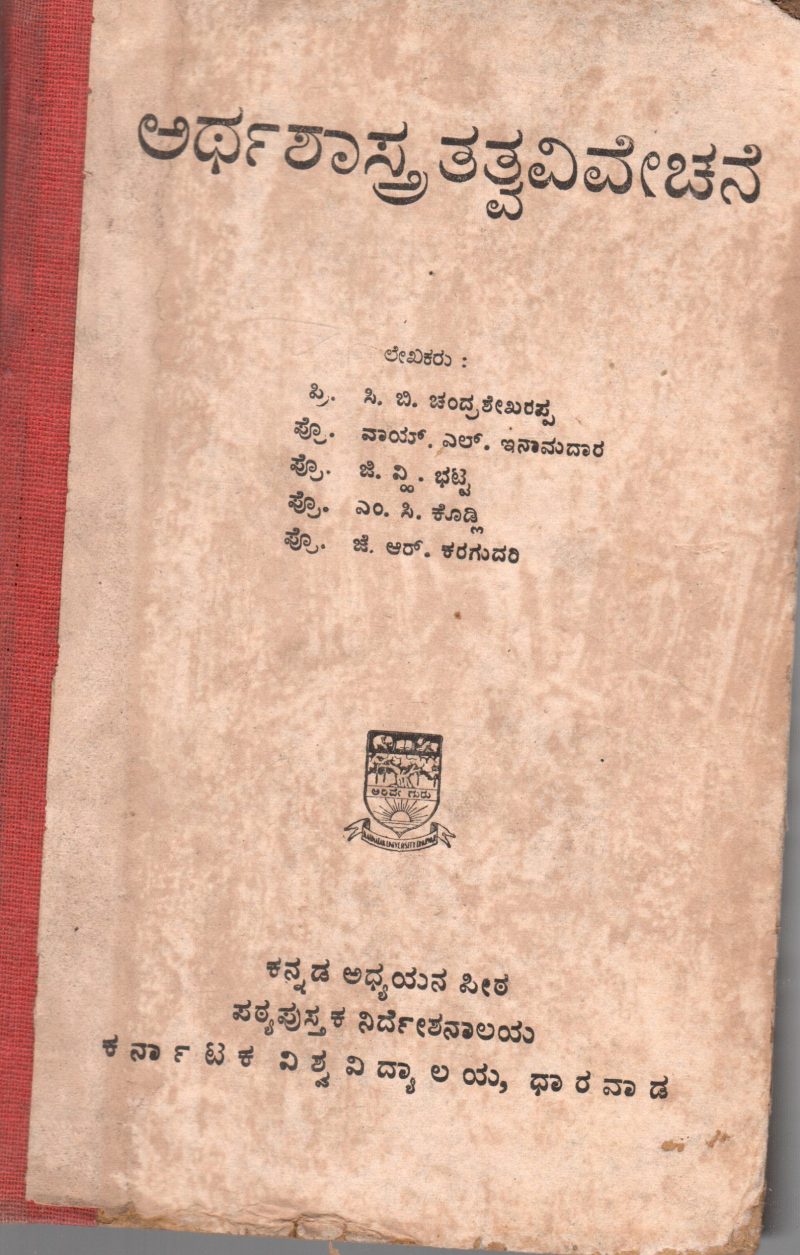 ಅರ್ಥಶಾಸ್ತ್ರ ತತ್ವವಿವೇಚನೆ
ಲೇಖಕರು :
ಪ್ರಿ. ಸಿ. ಬಿ. ಚಂದ್ರಶೇಖರಪ್ಪ
ಪ್ರೊ. ವಾಯ್. ಎಲ್. ಇನಾಮದಾರ
ಪ್ರೊ. ಜಿ. ವ್ಹಿ. ಭಟ್ಟ
ಪ್ರೊ. ಎಂ. ಸಿ. ಕೊಡ್ಲಿ
ಪ್ರೊ. ಜೆ. ಆರ್. ಕರಗುದರಿ
ಅರಿವೇ ಗುರು
KARNATAK UNIVERSITY DHARWAR
ಕನ್ನಡ ಅಧ್ಯಯನ ಪೀಠ
ಪಠ್ಯಪುಸ್ತಕ ನಿರ್ದೇಶನಾಲಯ
ಕರ್ನಾಟಕ ವಿಶ್ವವಿದ್ಯಾಲಯ, ಧಾರವಾಡ